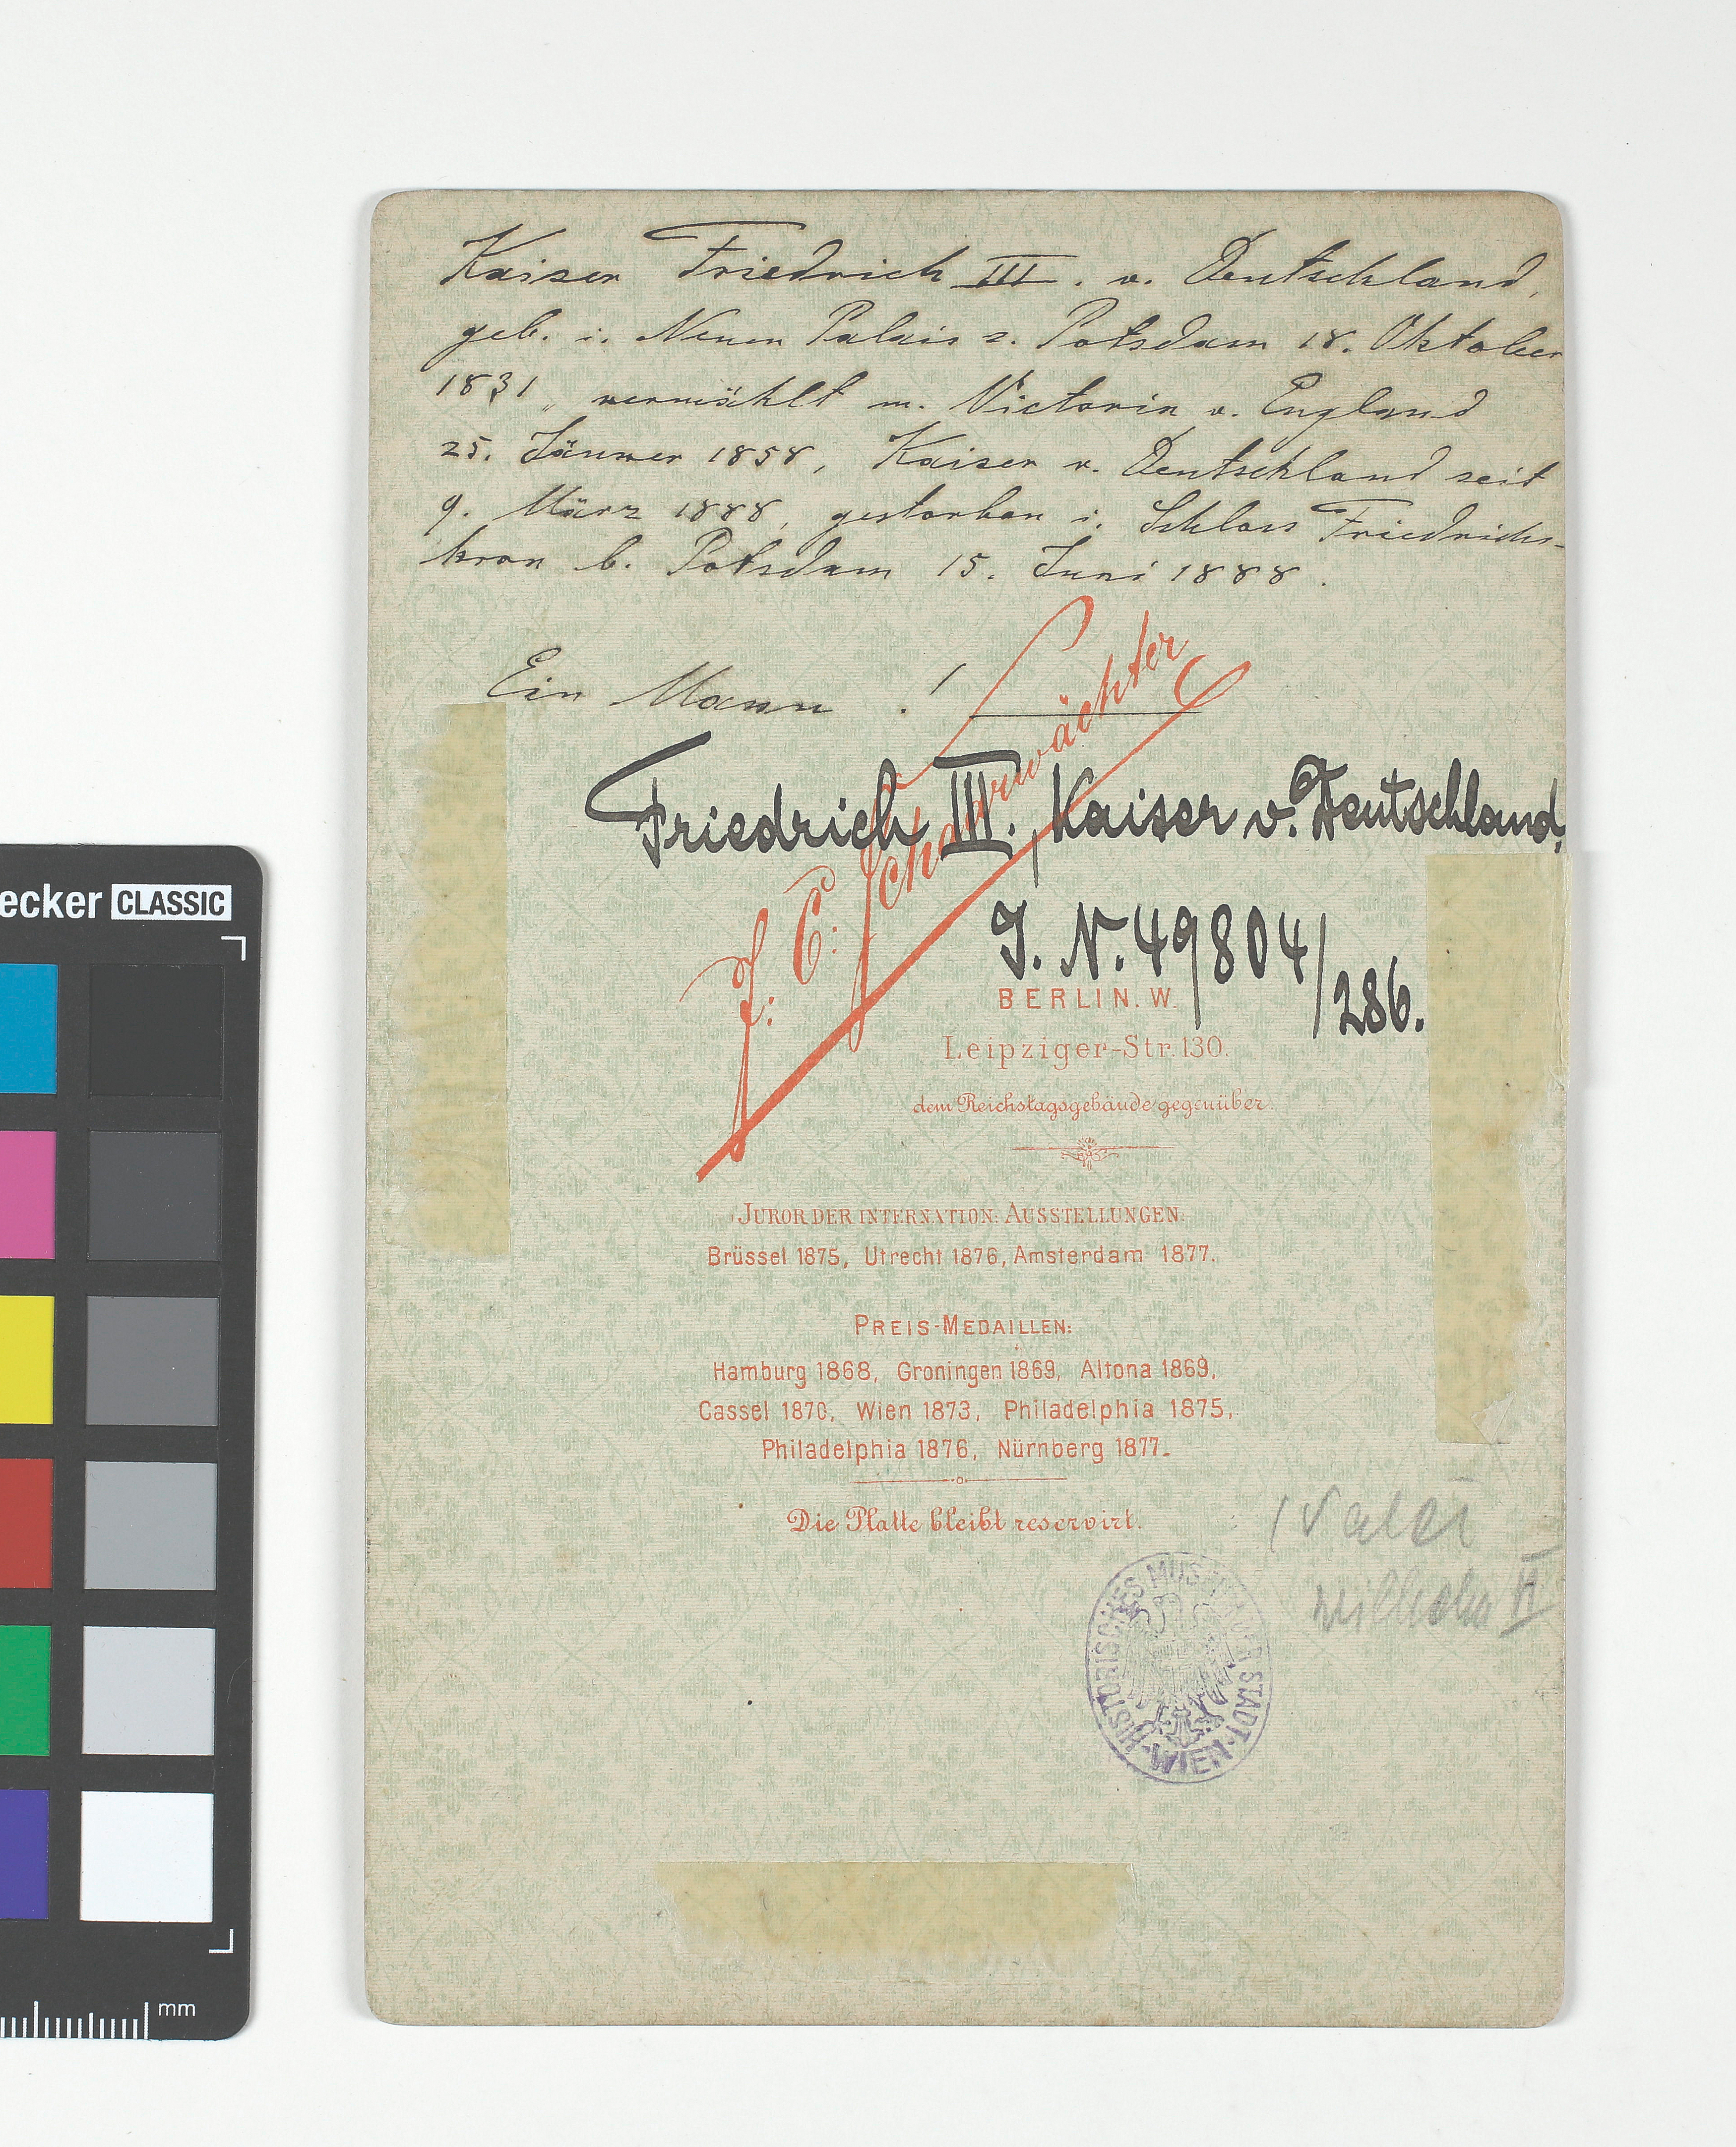 Kaiser Friedrich III. v. Deutschland,
geb. i. Neuen Palais z. Potsdam 18. Oktober
1831, vermählt m. Victoria v. England
25. Jänner 1858, Kaiser v. Deutschland seit
9. März 1888, gestorben i. Schloss Friedrichs-
kron b. Potsdam 15. Juni 1888.
Ein Mann . !
J. C. Schaarwächter
Friedrich III., Kaiser v. Deutschland,
J. N. 49804/286.
BERLIN. W.
Leipziger-Str. 130.
dem Reichstagsgebäude gegenüber.
JUROR DER INTERNATION. AUSSTELLUNGEN.
Brüssel 1875, Utrecht 1876, Amsterdam 1877.
PREIS-MEDAILLEN:
Hamburg 1868, Groningen 1869, Altona 1869,
Cassel 1870, Wien 1873, Philadelphia 1875,
Philadelphia 1876, Nürnberg 1877.
Die Platte bleibt reservirt.
(Vater
Wilhelm II
HISTORISCHES MUSEUM DER STADT WIEN
ecker CLASSIC
mm